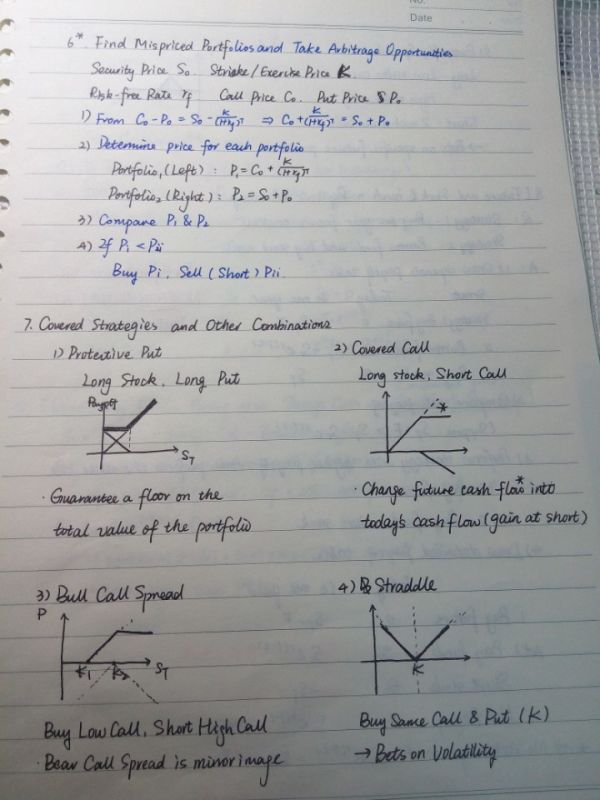 No.
Date
6* Find Mispriced Portfolios and Take Arbitrage Opportunities
Security Price S₀. Stricke / Exercise Price K.
Risk-free Rate rf Call Price C₀. Put Price P₀
1) From C₀ - P₀ = S₀ - K/(1+rf)ᵀ ⇒ C₀ + K/(1+rf)ᵀ = S₀ + P₀
2) Determine price for each portfolio
Portfolio₁ (Left) : P₁ = C₀ + K/(1+rf)ᵀ
Portfolio₂ (Right) : P₂ = S₀ + P₀
3) Compare P₁ & P₂
4) If Pi < Pii
Buy Pi, Sell (Short) Pii.
7. Covered Strategies and Other Combinations
1) Protective Put
Long Stock, Long Put
Payoff
S_T
· Guarantee a floor on the
total value of the portfolio
2) Covered Call
Long stock, Short Call
*
· Change future cash flow* into
today's cash flow (gain at short)
3) Bull Call Spread
P
K₁ K₂ S_T
Buy Low Call, Short High Call
· Bear Call Spread is mirror image
4) Straddle
K
Buy Same Call & Put (K)
→ Bets on Volatility